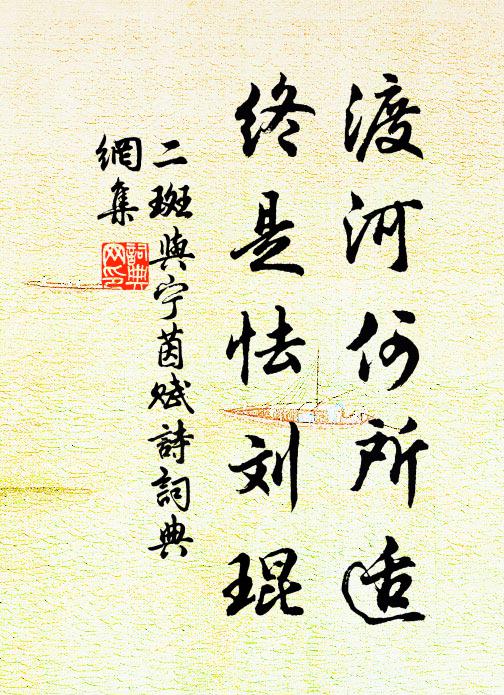 渡河何所适
终是怯刘琨
二斑與宁茵赋詩詞典
網集
詞典网印